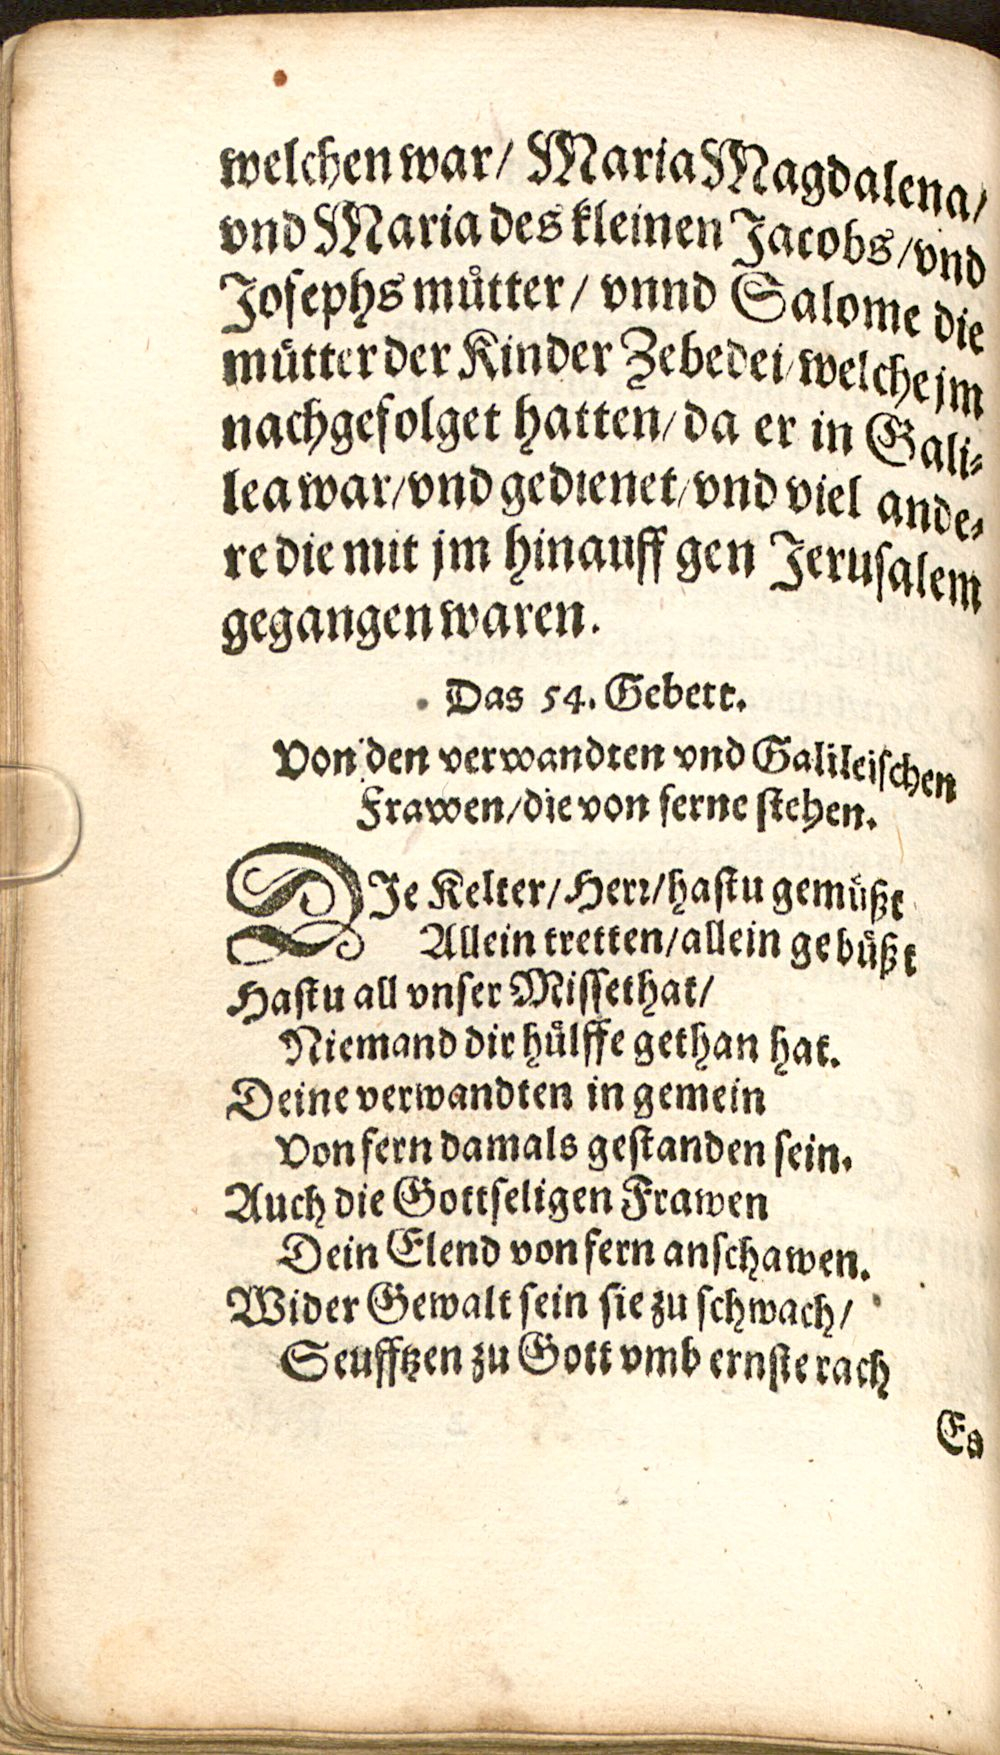 welchen war/ Maria Magdalena/
vnd Maria des kleinen Jacobs/vnd
Josephs muͤtter/ vnnd Salome die
muͤtter der Kinder Zebedei/welche jm
nachgefolget hatten/da er in Gali⸗
lea war/vnd gedienet/vnd viel ande⸗
re die mit jm hinauff gen Jerusalem
gegangen waren.
Das 54. Gebett.
Von den verwandten vnd Galileischen
Frawen/die von ferne stehen.
DJe Kelter/Herr/hastu gemuͤßt
Allein tretten/allein gebuͤßt
Hastu all vnser Missethat/
Niemand dir huͤlffe gethan hat.
Deine verwandten in gemein
Von fern damals gestanden sein.
Auch die Gottseligen Frawen
Dein Elend von fern anschawen.
Wider Gewalt sein sie zu schwach/
Seufftzen zu Gott vmb ernste rach
Es